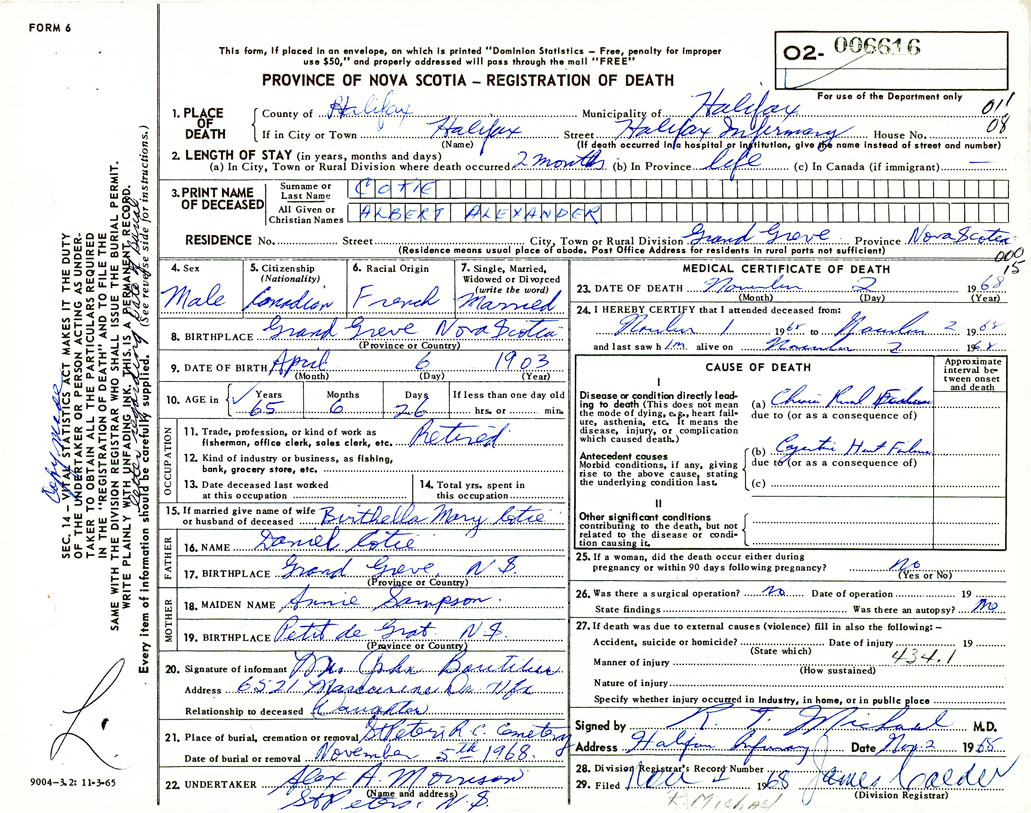 FORM 6
This form, if placed in an envelope, on which is printed "Dominion Statistics – Free, penalty for improper
use $50," and properly addressed will pass through the mail "FREE"
PROVINCE OF NOVA SCOTIA – REGISTRATION OF DEATH
O2- 006616
For use of the Department only
011
08
1. PLACE OF DEATH
County of Halifax Municipality of Halifax
If in City or Town Halifax Street Halifax Infirmary House No.
(Name) (If death occurred in a hospital or institution, give the name instead of street and number)
2. LENGTH OF STAY (in years, months and days)
(a) In City, Town or Rural Division where death occurred 2 months (b) In Province life (c) In Canada (if immigrant) —
3. PRINT NAME OF DECEASED
Surname or Last Name COTIE
All Given or Christian Names ALBERT ALEXANDER
RESIDENCE No. Street City, Town or Rural Division Grand Greve Province Nova Scotia
(Residence means usual place of abode. Post Office Address for residents in rural parts not sufficient)
000
15
4. Sex
Male
5. Citizenship
(Nationality)
Canadian
6. Racial Origin
French
7. Single, Married,
Widowed or Divorced
(write the word)
Married
8. BIRTHPLACE Grand Greve Nova Scotia
(Province or Country)
9. DATE OF BIRTH April 6 1903
(Month) (Day) (Year)
10. AGE in
Years Months Days If less than one day old
65 6 26 hrs. or min.
OCCUPATION
11. Trade, profession, or kind of work as
fisherman, office clerk, sales clerk, etc. Retired
12. Kind of industry or business, as fishing,
bank, grocery store, etc.
13. Date deceased last worked
at this occupation
14. Total yrs. spent in
this occupation
15. If married give name of wife
or husband of deceased Birthella Mary Cotie
FATHER
16. NAME Daniel Cotie
17. BIRTHPLACE Grand Greve, N.S.
(Province or Country)
MOTHER
18. MAIDEN NAME Annie Sampson
19. BIRTHPLACE Petit de Grat N.S.
(Province or Country)
20. Signature of informant Mrs John Boutilier
Address 6521 Mascarine Dr. Hfx
Relationship to deceased Daughter
21. Place of burial, cremation or removal St Peters R.C. Cemetery
Date of burial or removal November 5th 1968.
22. UNDERTAKER Alex A. Morrison
(Name and address)
St Peters, N.S.
MEDICAL CERTIFICATE OF DEATH
23. DATE OF DEATH November 2 1968
(Month) (Day) (Year)
24. I HEREBY CERTIFY that I attended deceased from:
November 1 1968 to November 2 1968
and last saw him alive on November 2 1968
CAUSE OF DEATH
Approximate
interval be-
tween onset
and death
I
Disease or condition directly lead-
ing to death (This does not mean
the mode of dying, e.g., heart fail-
ure, asthenia, etc. It means the
disease, injury, or complication
which caused death.)
(a)
due to (or as a consequence of)
Antecedent causes
Morbid conditions, if any, giving
rise to the above cause, stating
the underlying condition last.
(b) Heart Failure
due to (or as a consequence of)
(c)
II
Other significant conditions
contributing to the death, but not
related to the disease or condi-
tion causing it.
25. If a woman, did the death occur either during
pregnancy or within 90 days following pregnancy? No
(Yes or No)
26. Was there a surgical operation? No Date of operation 19
State findings Was there an autopsy? No
27. If death was due to external causes (violence) fill in also the following: –
Accident, suicide or homicide? Date of injury 19
(State which)
434.1
Manner of injury
(How sustained)
Nature of injury
Specify whether injury occurred in industry, in home, or in public place
Signed by R. T. Michael M.D.
Address Halifax Infirmary Date Nov. 2 1968
28. Division Registrar's Record Number
29. Filed 1968 James Calder
(Division Registrar)
R. Michael
SEC. 14 – VITAL STATISTICS ACT MAKES IT THE DUTY
OF THE UNDERTAKER OR PERSON ACTING AS UNDER-
TAKER TO OBTAIN ALL THE PARTICULARS REQUIRED
IN THE "REGISTRATION OF DEATH" AND TO FILE THE
SAME WITH THE DIVISION REGISTRAR WHO SHALL ISSUE THE BURIAL PERMIT.
WRITE PLAINLY WITH UNFADING INK. THIS IS A PERMANENT RECORD.
Every item of information should be carefully supplied. (See reverse side for instructions.)
letter regarding date of burial
L.
9004-3.2: 11-3-65